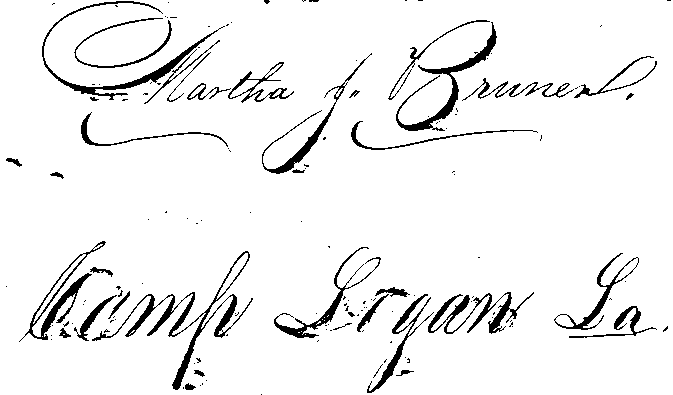 Martha J. Bruner.
Camp Logan La.